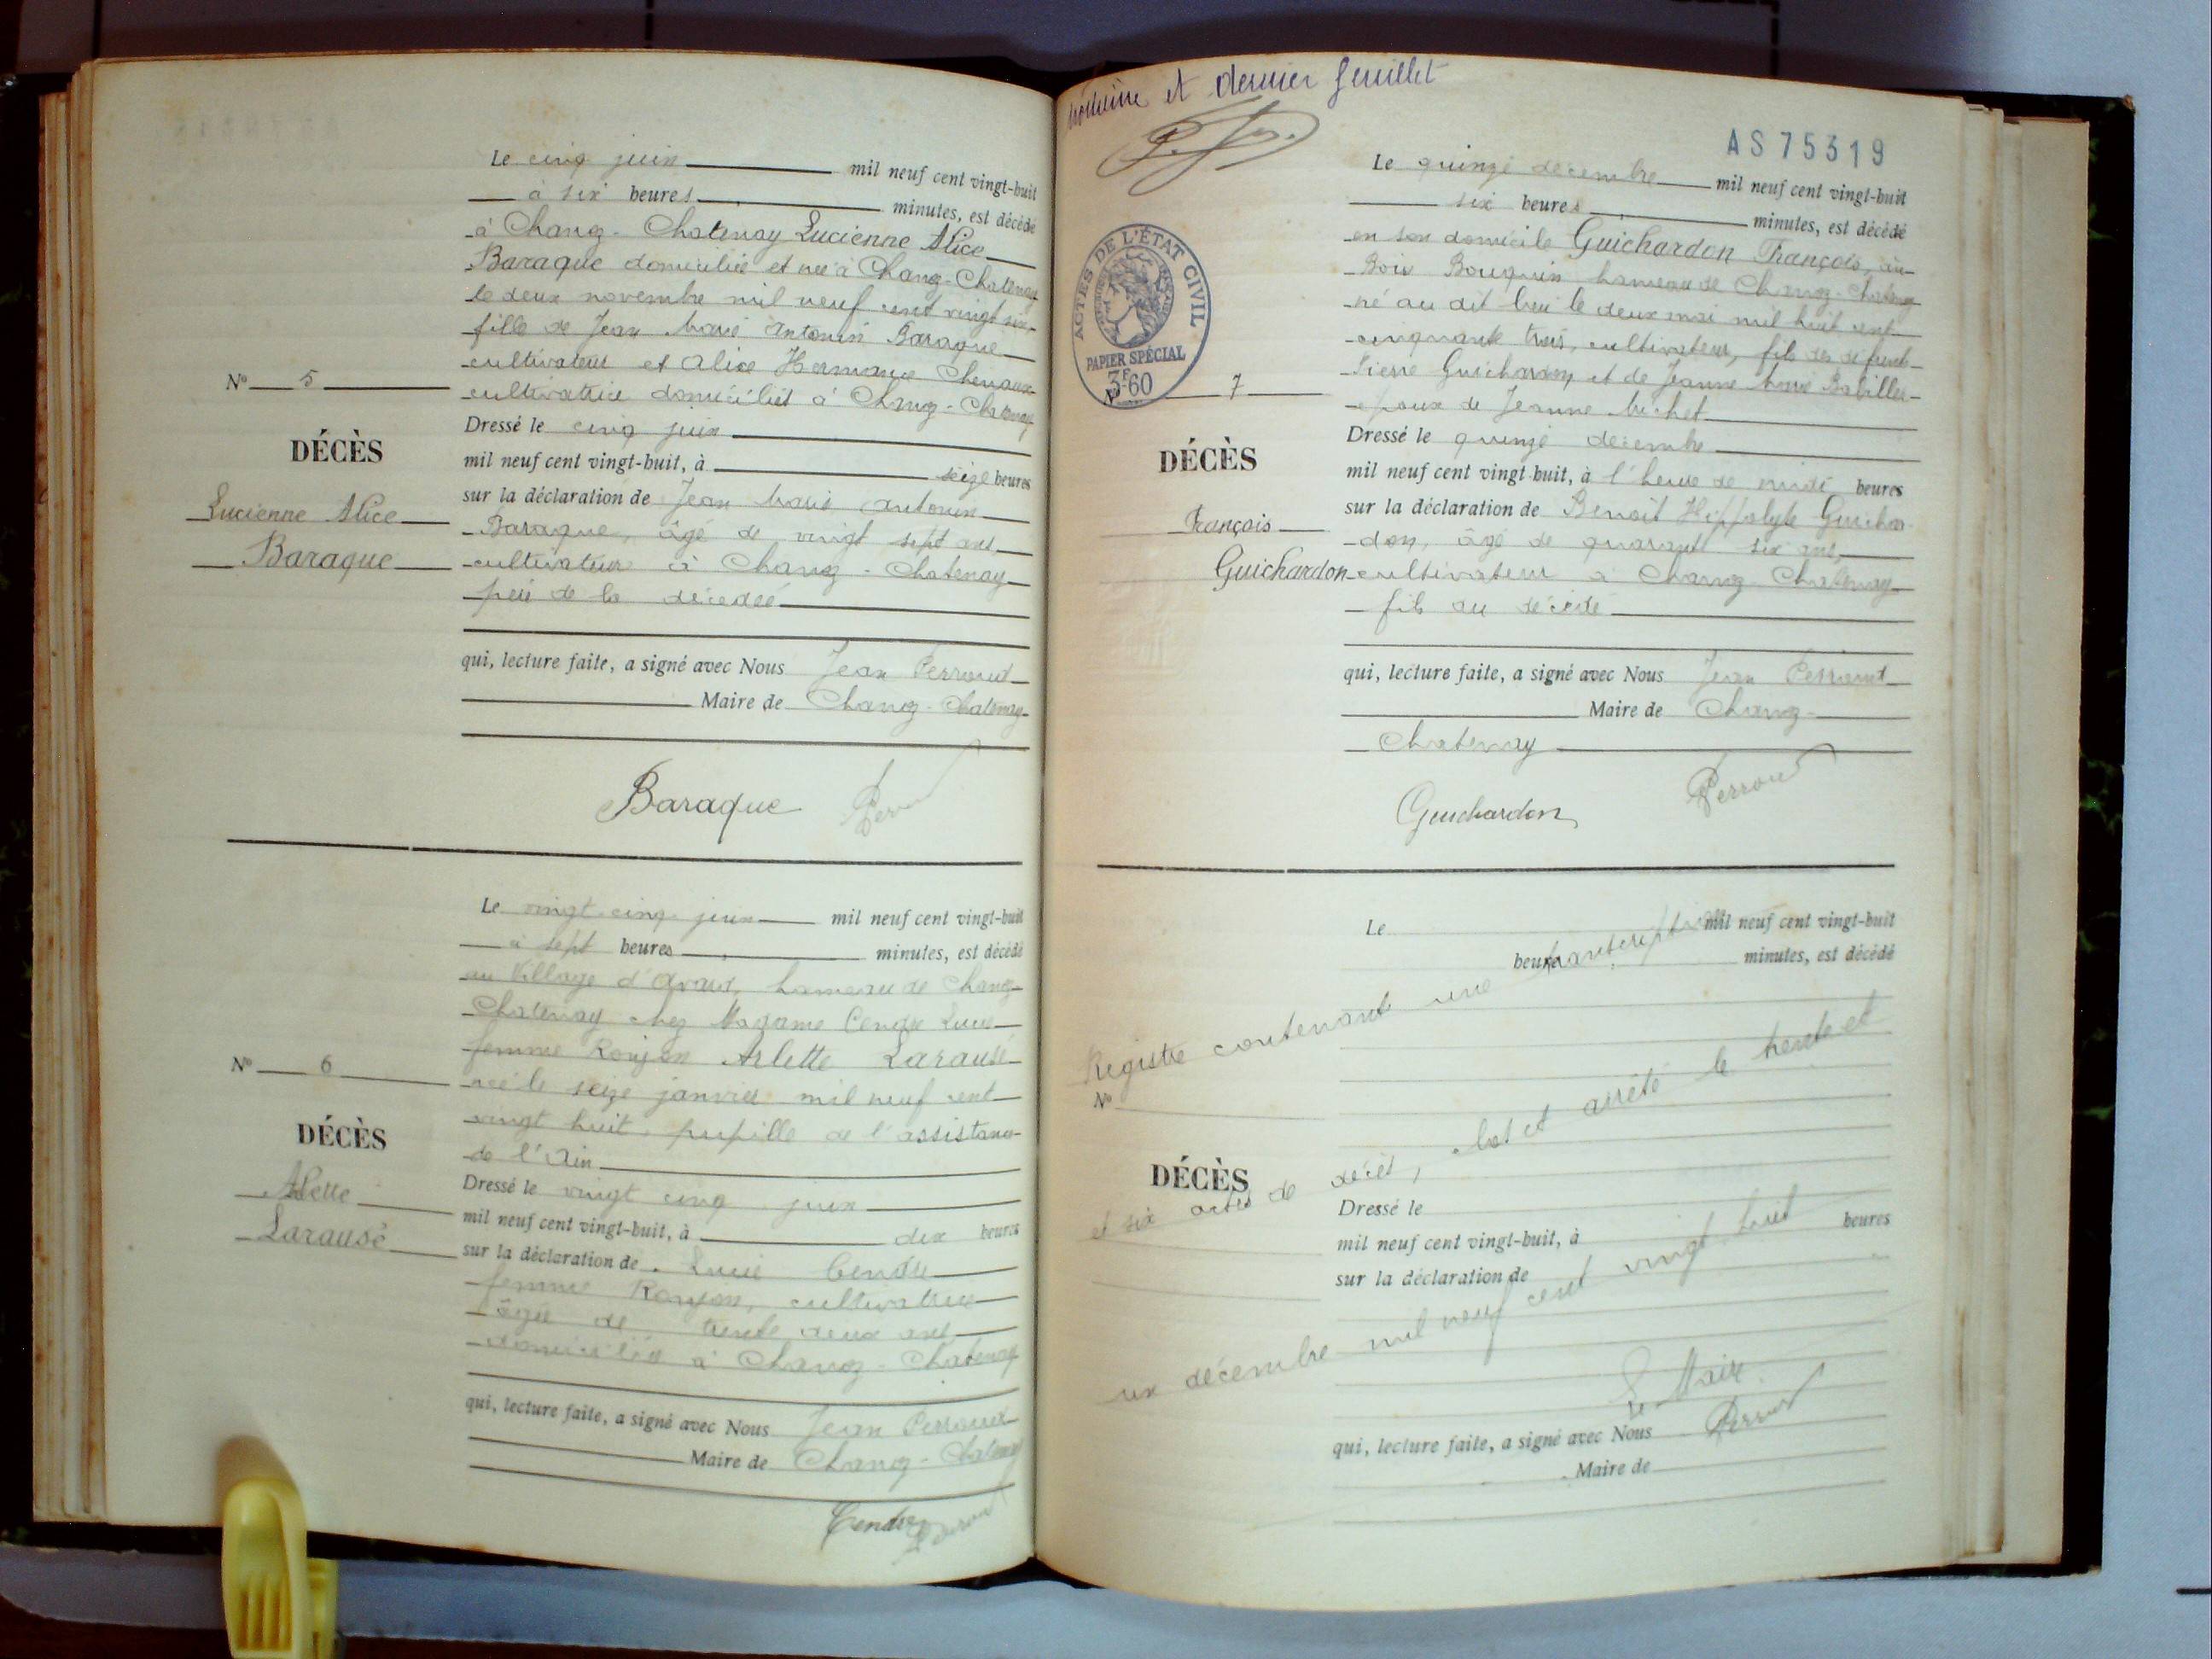 Le cinq juin mil neuf cent vingt-huit
à six heures minutes, est décédé
à Chanoz-Chatenay Lucienne Alice
Baraque domiciliée et née à Chanoz-Chatenay
le deux novembre mil neuf cent vingt six
fille de Jean Marie Antonin Baraque
cultivateur et Alice Hermance
cultivatrice domiciliés à Chanoz-Chatenay
Nº 5
DÉCÈS
Lucienne Alice
Baraque
Dressé le cinq juin
mil neuf cent vingt-huit, à seize heures
sur la déclaration de Jean Marie Antonin
Baraque, âgé de vingt sept ans
cultivateur à Chanoz-Chatenay
père de la décédée
qui, lecture faite, a signé avec Nous Jean Perroud
Maire de Chanoz-Chatenay
Baraque Perroud
Le vingt-cinq juin mil neuf cent vingt-huit
à sept heures minutes, est décédé
au Village d'Avaux, hameau de Chanoz-
Chatenay chez Madame Cendre Lucie
femme Roujon Arlette Larausé
née le seize janvier mil neuf cent
vingt huit, pupille de l'assistance
de l'Ain
Nº 6
DÉCÈS
Arlette
Larausé
Dressé le vingt cinq juin
mil neuf cent vingt-huit, à dix heures
sur la déclaration de Lucie Cendre
femme Roujon, cultivatrice
âgée de trente deux ans
domiciliée à Chanoz-Chatenay
qui, lecture faite, a signé avec Nous Jean Perroud
Maire de Chanoz-Chatenay
Cendre Perroud
et dernier feuillet
AS 75319
ACTES DE L'ÉTAT CIVIL
PAPIER SPÉCIAL
3F60
Le quinze décembre mil neuf cent vingt-huit
six heures minutes, est décédé
en son domicile Guichardon François, au
Bois Bouquin hameau de Chanoz-Chatenay
né au dit lieu le deux mai mil huit cent
cinquante trois, cultivateur, fils des défunts
Pierre Guichardon et de Jeanne Marie
époux de Jeanne Michet
Nº 7
DÉCÈS
François
Guichardon
Dressé le quinze décembre
mil neuf cent vingt-huit, à l'heure de midi heures
sur la déclaration de Benoit Hippolyte Guichar-
don, âgé de quarante six ans
cultivateur à Chanoz Chatenay
fils du décédé
qui, lecture faite, a signé avec Nous Jean Perroud
Maire de Chanoz-
Chatenay
Guichardon Perroud
Le mil neuf cent vingt-huit
heures minutes, est décédé
Registre contenant une transcription
Nº
DÉCÈS
et six actes de décès, clos et arrêté le trente et
Dressé le
mil neuf cent vingt-huit, à heures
sur la déclaration de
un décembre mil neuf cent vingt huit
Le Maire
Perroud
qui, lecture faite, a signé avec Nous
Maire de